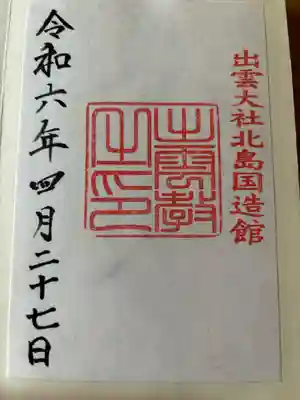 出雲大社北島国造館
出雲教之印
令和六年四月二十七日